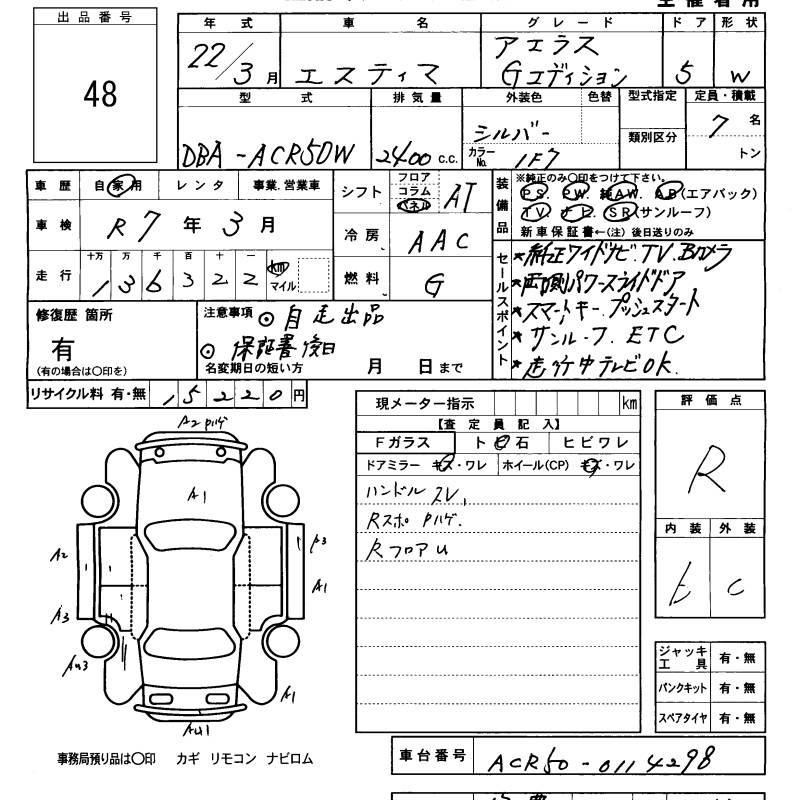 出品番号
48
年式
22/3月
車名
エスティマ
グレード
アエラス
Gエディション
ドア
5
形状
W
型式
DBA-ACR50W
排気量
2400 c.c.
外装色
色替
シルバー
カラーNo.
1F7
型式指定
類別区分
定員・積載
7名
トン
車歴
自家用
レンタ
事業.営業車
車検
R7年3月
走行
十万 万 千 百 十 一
136322
km
マイル
シフト
フロア
コラム
パネル
AT
冷房
AAC
燃料
G
装備品
※純正のみ〇印をつけて下さい。
PS. PW. 純AW. AB(エアバック)
TV. ナビ. SR(サンルーフ)
新車保証書←(注)後日送りのみ
セールスポイント
*純正ワイドナビ.TV.Bカメラ
*両側パワースライドドア
*スマートキー.プッシュスタート
*サンルーフ. ETC
*走行中テレビOK.
修復歴 箇所
有
(有の場合は〇印を)
注意事項
◎自走出品
◎保証書後日
名変期日の短い方
月 日まで
リサイクル料 有・無
15220円
現メーター指示
km
【査定員記入】
Fガラス
トビ石
ヒビワレ
ドアミラー キズ・ワレ
ホイール(CP) キズ・ワレ
ハンドルスレ,
RスポPハゲ.
RフロアU
評価点
R
内装
外装
C
A2Pハゲ
A1
A2
P3
A1
A3
AU3
A1
AU1
ジャッキ
工具
有・無
パンクキット
有・無
スペアタイヤ
有・無
事務局預り品は〇印 カギ リモコン ナビロム
車台番号
ACR50-0114298